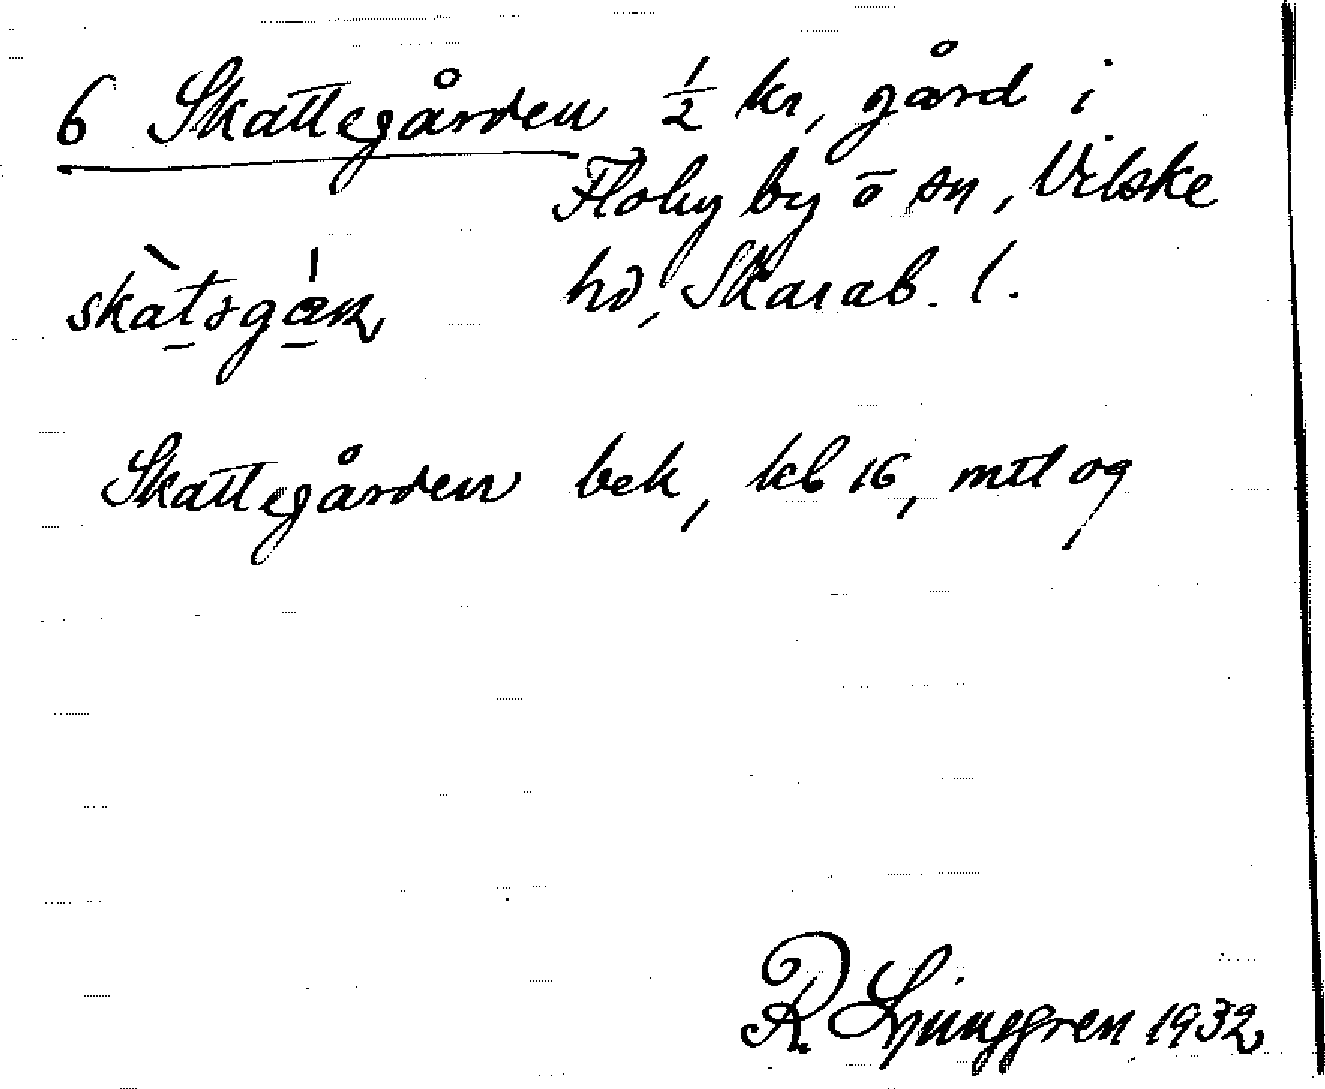 6 Skattegården ½ kr, gård i
Floby by o sn, Vilske
skàtəgán hd, Skarab. l.
Skattegården bek, kb 16, mtl og
R Ljunggren 1932